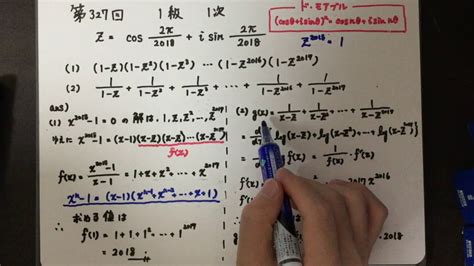 第327回 1級 1次
ド・モアブル
(cosθ+isinθ)ⁿ = cos nθ + i sin nθ
z = cos 2π/2018 + i sin 2π/2018
z²⁰¹⁸ = 1
(1) (1-z)(1-z²)(1-z³) ⋯ (1-z²⁰¹⁶)(1-z²⁰¹⁷)
(2) 1/(1-z) + 1/(1-z²) + ⋯ + 1/(1-z²⁰¹⁷)
ans)
(1) x²⁰¹⁸-1 = 0 の解は 1, z, z², ⋯, z²⁰¹⁷
ゆえに x²⁰¹⁸-1 = (x-1)(x-z)(x-z²)⋯(x-z²⁰¹⁷)
f(x)
f(x) = (x²⁰¹⁸-1)/(x-1) = 1+x+x²+⋯+x²⁰¹⁷
xⁿ-1 = (x-1)(xⁿ⁻¹+xⁿ⁻²+⋯+x+1)
求める値は
f(1) = 1+1+1²+⋯+1²⁰¹⁷
= 2018
(2) g(x) = 1/(x-z) + 1/(x-z²) + ⋯ + 1/(x-z²⁰¹⁷)
log(x-z) + log(x-z²) + ⋯ + log(x-z²⁰¹⁷)}
f(x) = 1/f(x) · f'(x)
2017x²⁰¹⁶
f'(1)